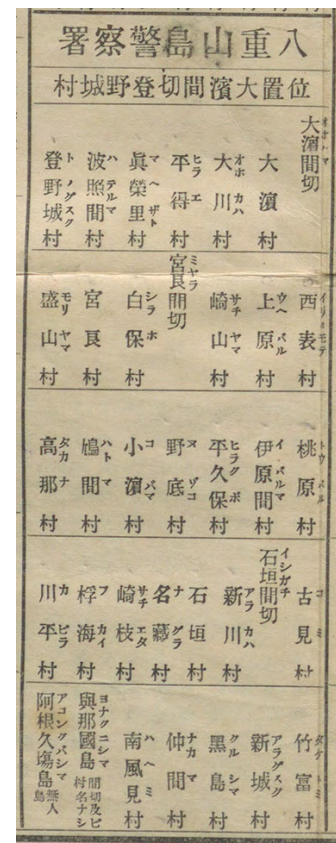 八重山島警察署
位置大濱間切登野城村
大濱間切
大濱村
大川村 オホカハ
平得村 ヒラエ
眞榮里村 マヘザト
波照間村 ハテルマ
登野城村 トノグスク
西表村 イリモテ
上原村 ウヘバル
崎山村 サチヤマ
宮良間切 ミヤラ
白保村 シラホ
宮良村
盛山村 モリヤマ
桃原村 トウバル
伊原間村 イバルマ
平久保村 ヒラクボ
野底村 ヌゾコ
小濱村 コバマ
鳩間村 ハトマ
高那村 タカナ
古見村 コミ
石垣間切 イシガチ
新川村 アラカハ
石垣村
名藏村 ナグラ
崎枝村 サチエタ
桴海村 フカイ
川平村 カビラ
竹富村 タケトミ
新城村 アラグスク
黑島村 クルシマ
仲間村 ナカマ
南風見村 ハヘミ
與那國島 ヨナクニシマ 間切及ビ村名ナシ
阿根久塲島 アコンクバシマ 無人島